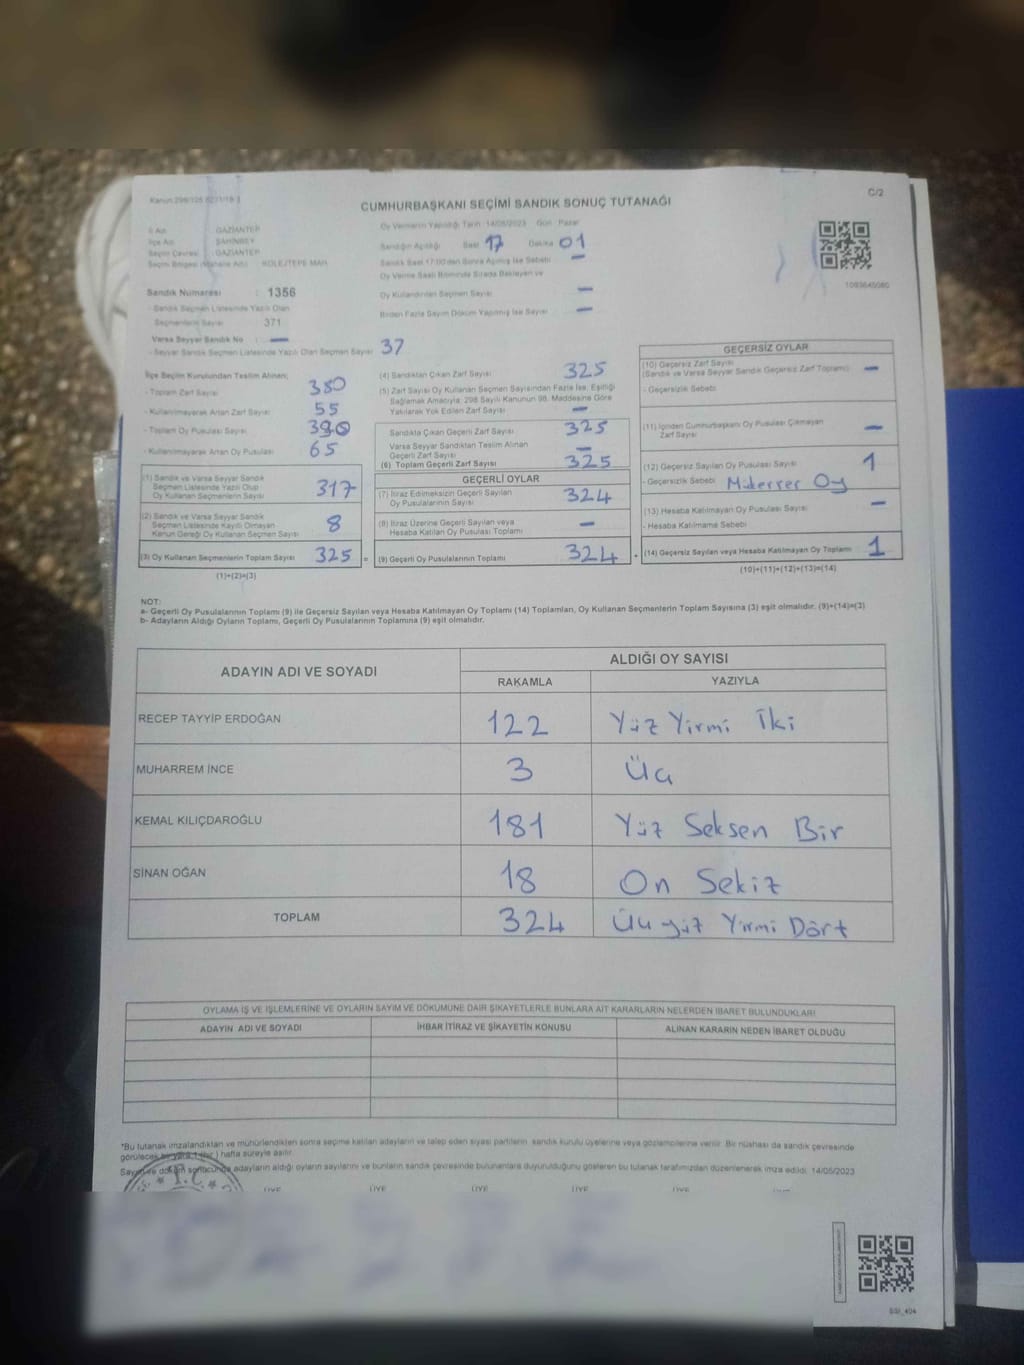 Kanun 298/105
C/2
CUMHURBAŞKANI SEÇİMİ SANDIK SONUÇ TUTANAĞI
İl Adı : GAZİANTEP
İlçe Adı : ŞAHİNBEY
Seçim Çevresi : GAZİANTEP
Seçim Bölgesi (Mahalle Adı) : KOLEJTEPE MAH.
Oy Vermenin Yapıldığı Tarih :14/05/2023 Gün : Pazar
Sandığın Açıldığı Saat 17 Dakika 01
Sandık Saat 17:00'den Sonra Açılmış İse Sebebi —
Oy Verme Saati Bitiminde Sırada Bekleyen ve
Oy Kullandırılan Seçmen Sayısı —
Birden Fazla Sayım Döküm Yapılmış İse Sayısı —
Sandık Numarası : 1356
- Sandık Seçmen Listesinde Yazılı Olan
Seçmenlerin Sayısı 371
Varsa Seyyar Sandık No : —
- Seyyar Sandık Seçmen Listesinde Yazılı Olan Seçmen Sayısı 37
İlçe Seçim Kurulundan Teslim Alınan;
- Toplam Zarf Sayısı 380
- Kullanılmayarak Artan Zarf Sayısı 55
- Toplam Oy Pusulası Sayısı 390
- Kullanılmayarak Artan Oy Pusulası 65
(1) Sandık ve Varsa Seyyar Sandık
Seçmen Listesinde Yazılı Olup
Oy Kullanan Seçmenlerin Sayısı 317
(2) Sandık ve Varsa Seyyar Sandık
Seçmen Listesinde Kayıtlı Olmayan
Kanun Gereği Oy Kullanan Seçmen Sayısı 8
(3) Oy Kullanan Seçmenlerin Toplam Sayısı 325
(1)+(2)=(3)
(4) Sandıktan Çıkan Zarf Sayısı 325
(5) Zarf Sayısı Oy Kullanan Seçmen Sayısından Fazla İse, Eşitliği
Sağlamak Amacıyla; 298 Sayılı Kanunun 98. Maddesine Göre
Yakılarak Yok Edilen Zarf Sayısı —
Sandıkta Çıkan Geçerli Zarf Sayısı 325
Varsa Seyyar Sandıktan Teslim Alınan
Geçerli Zarf Sayısı —
(6) Toplam Geçerli Zarf Sayısı 325
GEÇERLİ OYLAR
(7) İtiraz Edilmeksizin Geçerli Sayılan
Oy Pusulalarının Sayısı 324
(8) İtiraz Üzerine Geçerli Sayılan veya
Hesaba Katılan Oy Pusulası Toplamı —
= (9) Geçerli Oy Pusulalarının Toplamı 324
1093645080
GEÇERSİZ OYLAR
(10) Geçersiz Zarf Sayısı
(Sandık ve Varsa Seyyar Sandık Geçersiz Zarf Toplamı) —
- Geçersizlik Sebebi
(11) İçinden Cumhurbaşkanı Oy Pusulası Çıkmayan
Zarf Sayısı —
(12) Geçersiz Sayılan Oy Pusulası Sayısı 1
- Geçersizlik Sebebi Mükerrer Oy
(13) Hesaba Katılmayan Oy Pusulası Sayısı —
- Hesaba Katılmama Sebebi
+ (14) Geçersiz Sayılan veya Hesaba Katılmayan Oy Toplamı 1
(10)+(11)+(12)+(13)=(14)
NOT:
a- Geçerli Oy Pusulalarının Toplamı (9) ile Geçersiz Sayılan veya Hesaba Katılmayan Oy Toplamı (14) Toplamları, Oy Kullanan Seçmenlerin Toplam Sayısına (3) eşit olmalıdır. (9)+(14)=(3)
b- Adayların Aldığı Oyların Toplamı, Geçerli Oy Pusulalarının Toplamına (9) eşit olmalıdır.
ADAYIN ADI VE SOYADI ALDIĞI OY SAYISI
RAKAMLA YAZIYLA
RECEP TAYYİP ERDOĞAN 122 Yüz Yirmi İki
MUHARREM İNCE 3 Üç
KEMAL KILIÇDAROĞLU 181 Yüz Seksen Bir
SİNAN OĞAN 18 On Sekiz
TOPLAM 324 Üç yüz Yirmi Dört
OYLAMA İŞ VE İŞLEMLERİNE VE OYLARIN SAYIM VE DÖKÜMÜNE DAİR ŞİKAYETLERLE BUNLARA AİT KARARLARIN NELERDEN İBARET BULUNDUKLARI
ADAYIN ADI VE SOYADI İHBAR İTİRAZ VE ŞİKAYETİN KONUSU ALINAN KARARIN NEDEN İBARET OLDUĞU
*Bu tutanak imzalandıktan ve mühürlendikten sonra seçime katılan adayların ve talep eden siyasi partilerin sandık kurulu üyelerine veya gözlemcilerine verilir. Bir nüshası da sandık çevresinde
görülecek bir yere 1 (bir) hafta süreyle asılır.
Sayım ve döküm sonucunda adayların aldığı oyların sayılarını ve bunların sandık çevresinde bulunanlara duyurulduğunu gösteren bu tutanak tarafımızdan düzenlenerek imza edildi. 14/05/2023
T.C.
ÜYE ÜYE ÜYE ÜYE ÜYE
SSI_404